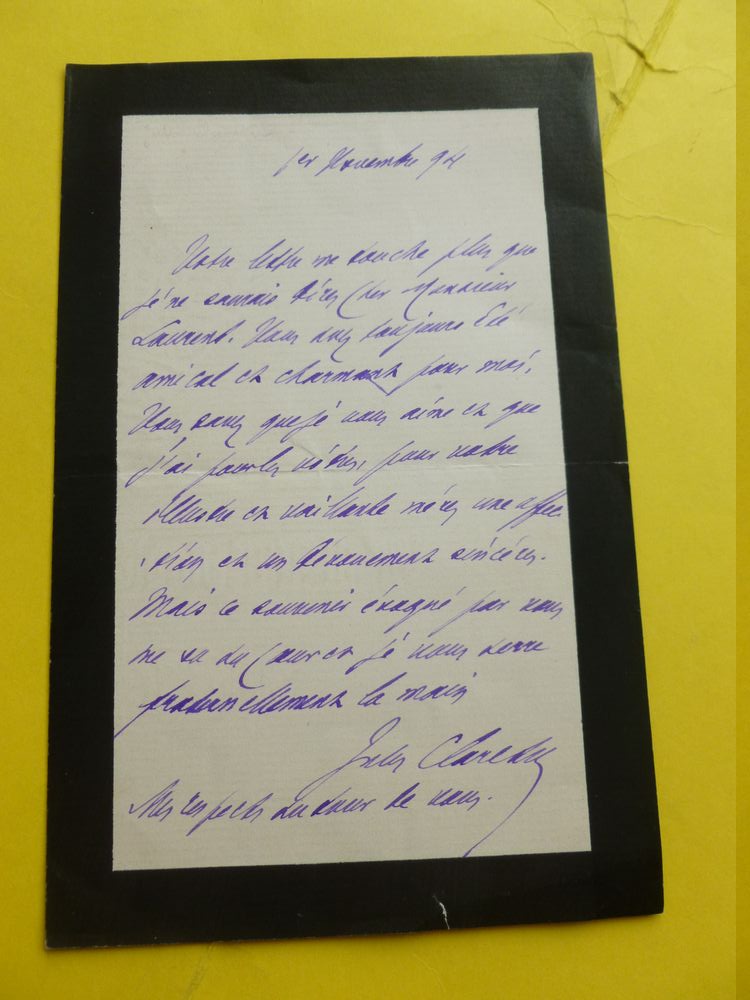 1er Novembre 94
Votre lettre me touche plus que
je ne saurais dire, Cher Monsieur
Laurent. Vous avez toujours été
amical et charmant pour moi.
Vous savez que je vous aime et que
j'ai pour les vôtres, pour votre
illustre et vaillante mère, une affec
tion et un dévouement sincères.
Mais ce souvenir évoqué par vous
me va au cœur et je vous serre
fraternellement la main
Jules Claretie
Mes respects autour de vous.